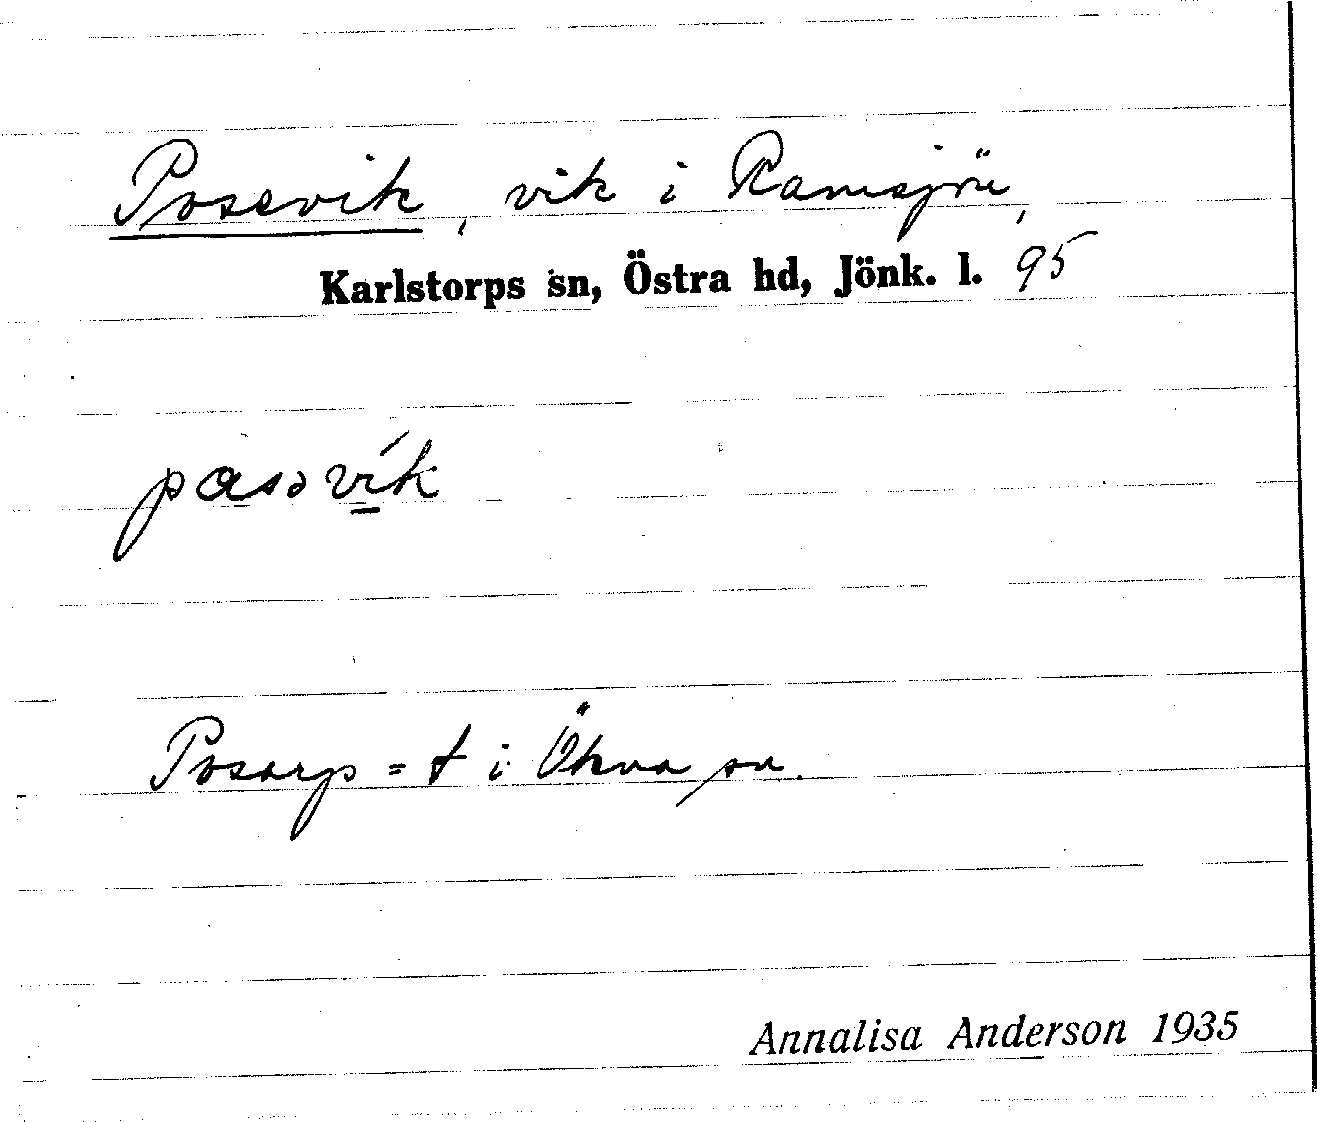 Possevik, vik i Ramsjön,
Karlstorps sn, Östra hd, Jönk. l. 95
påsəvik
Posarp = t i Ökna sn.
Annalisa Anderson 1935